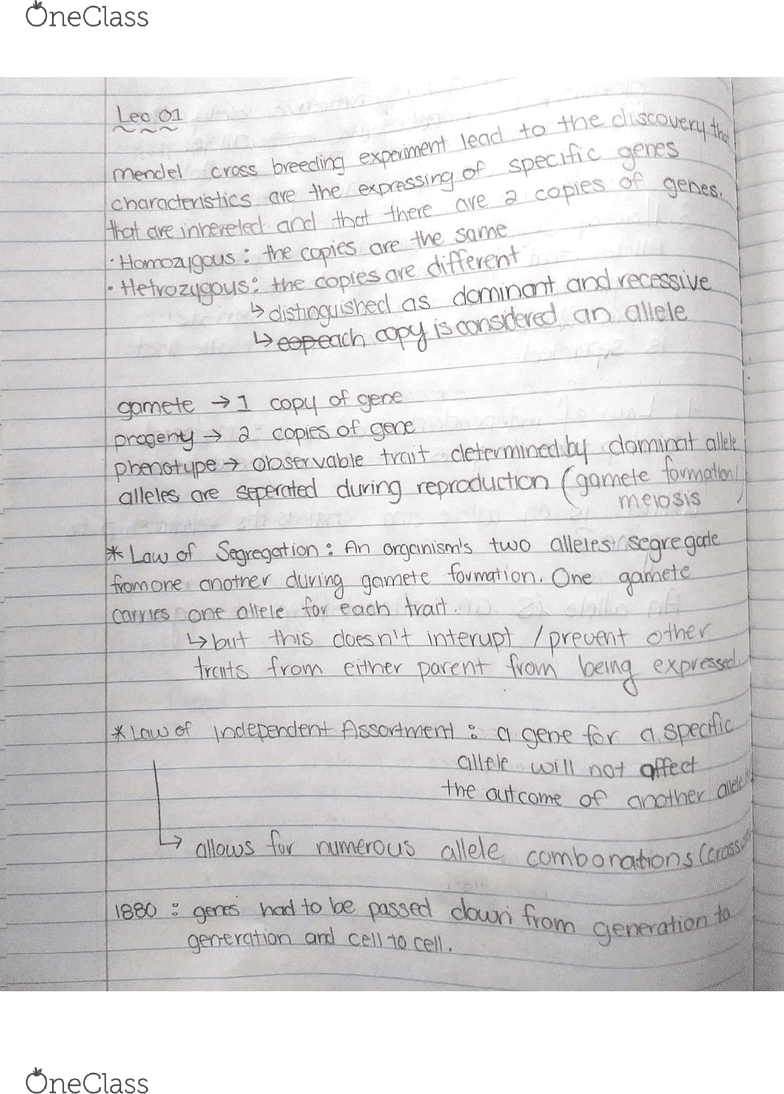 OneClass
Lec 01
mendel cross breeding experiment lead to the discovery tha
characteristics are the expressing of specific genes
that are inhereted and that there are 2 copies of genes.
• Homozygous : the copies are the same
• Hetrozygous : the copies are different
↳ distinguished as dominant and recessive
↳ copeach copy is considered an allele
gamete → 1 copy of gene
progeny → 2 copies of gene
phenotype → observable trait determined by dominat allele
alleles are seperated during reproduction (gamete formation/
meiosis )
* Law of Segregation : An organism's two alleles segregate
from one another during gamete formation. One gamete
carries one allele for each trait.
↳ but this doesn't interupt / prevent other
traits from either parent from being expressed.
* Law of Independent Assortment : a gene for a specific
allele will not affect
the outcome of another allele
↳ allows for numerous allele combonations (cross
1880 : genes had to be passed down from generation to
generation and cell to cell.
OneClass